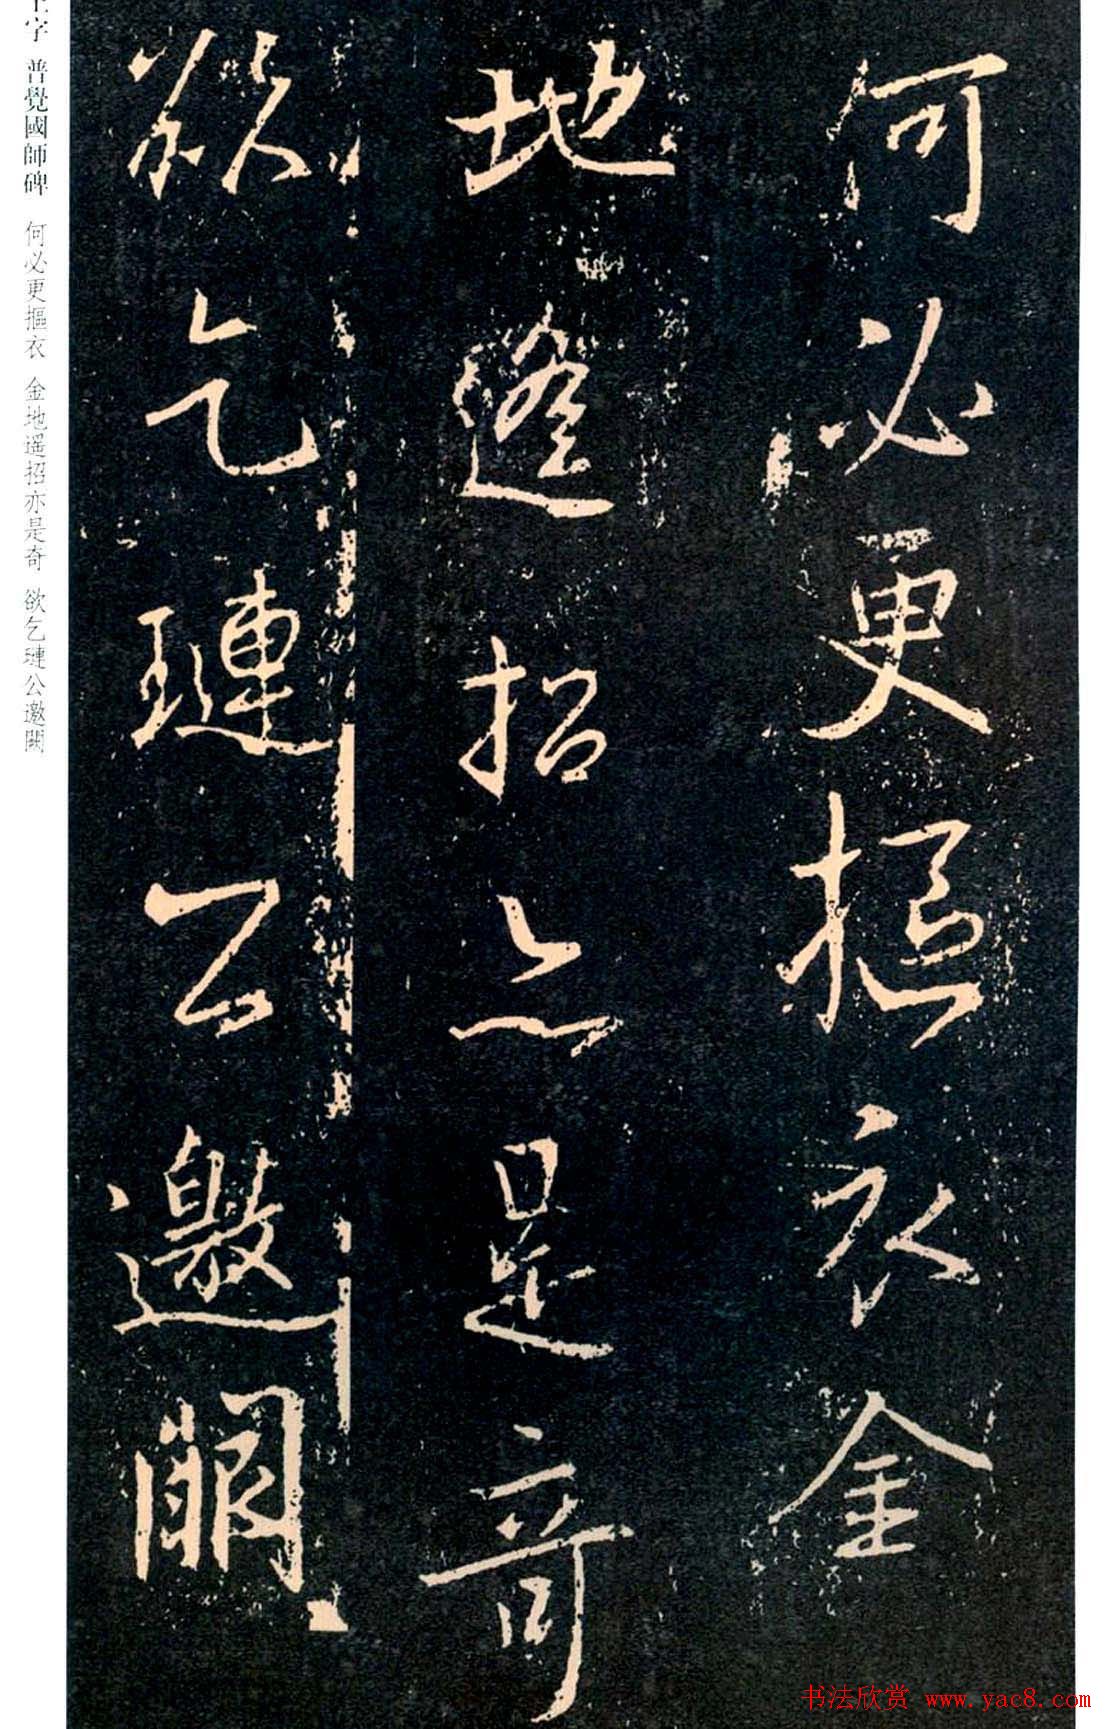 何必更摳衣金
地遥招亦是奇
欲乞璉公邀闕
王字 普覺國師碑 何必更摳衣 金地遥招亦是奇 欲乞璉公邀闕
书法欣赏 www.yac8.com